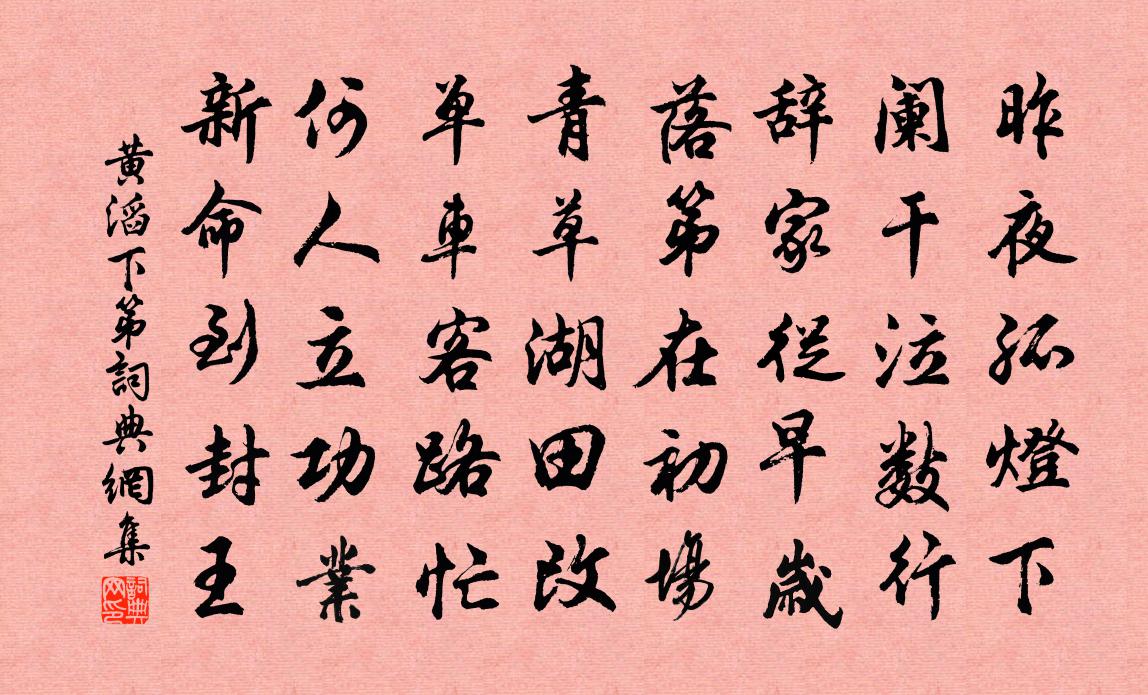 昨夜孤燈下
阑干泣数行
辞家從早歲
落第在初場
青草湖田改
单車客路忙
何人立功業
新命到封王
黄滔下第詞典網集
詞典网印